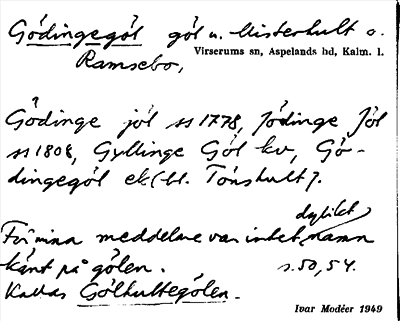 Gödingegöl göl u. Misterhult o.
Virserums sn, Aspelands hd, Kalm. l.
Ramsebo,
Gödinge jöl ss 1778, Jödinge Jöl
ss 1808, Gyllinge Göl kv, Gö-
dingegöl ek (bl. Tönshult).
dylikt
För mina meddelare var intet namn
känt på gölen. s. 50, 54.
Kallas Gölhultegölen.
Ivar Modéer 1949